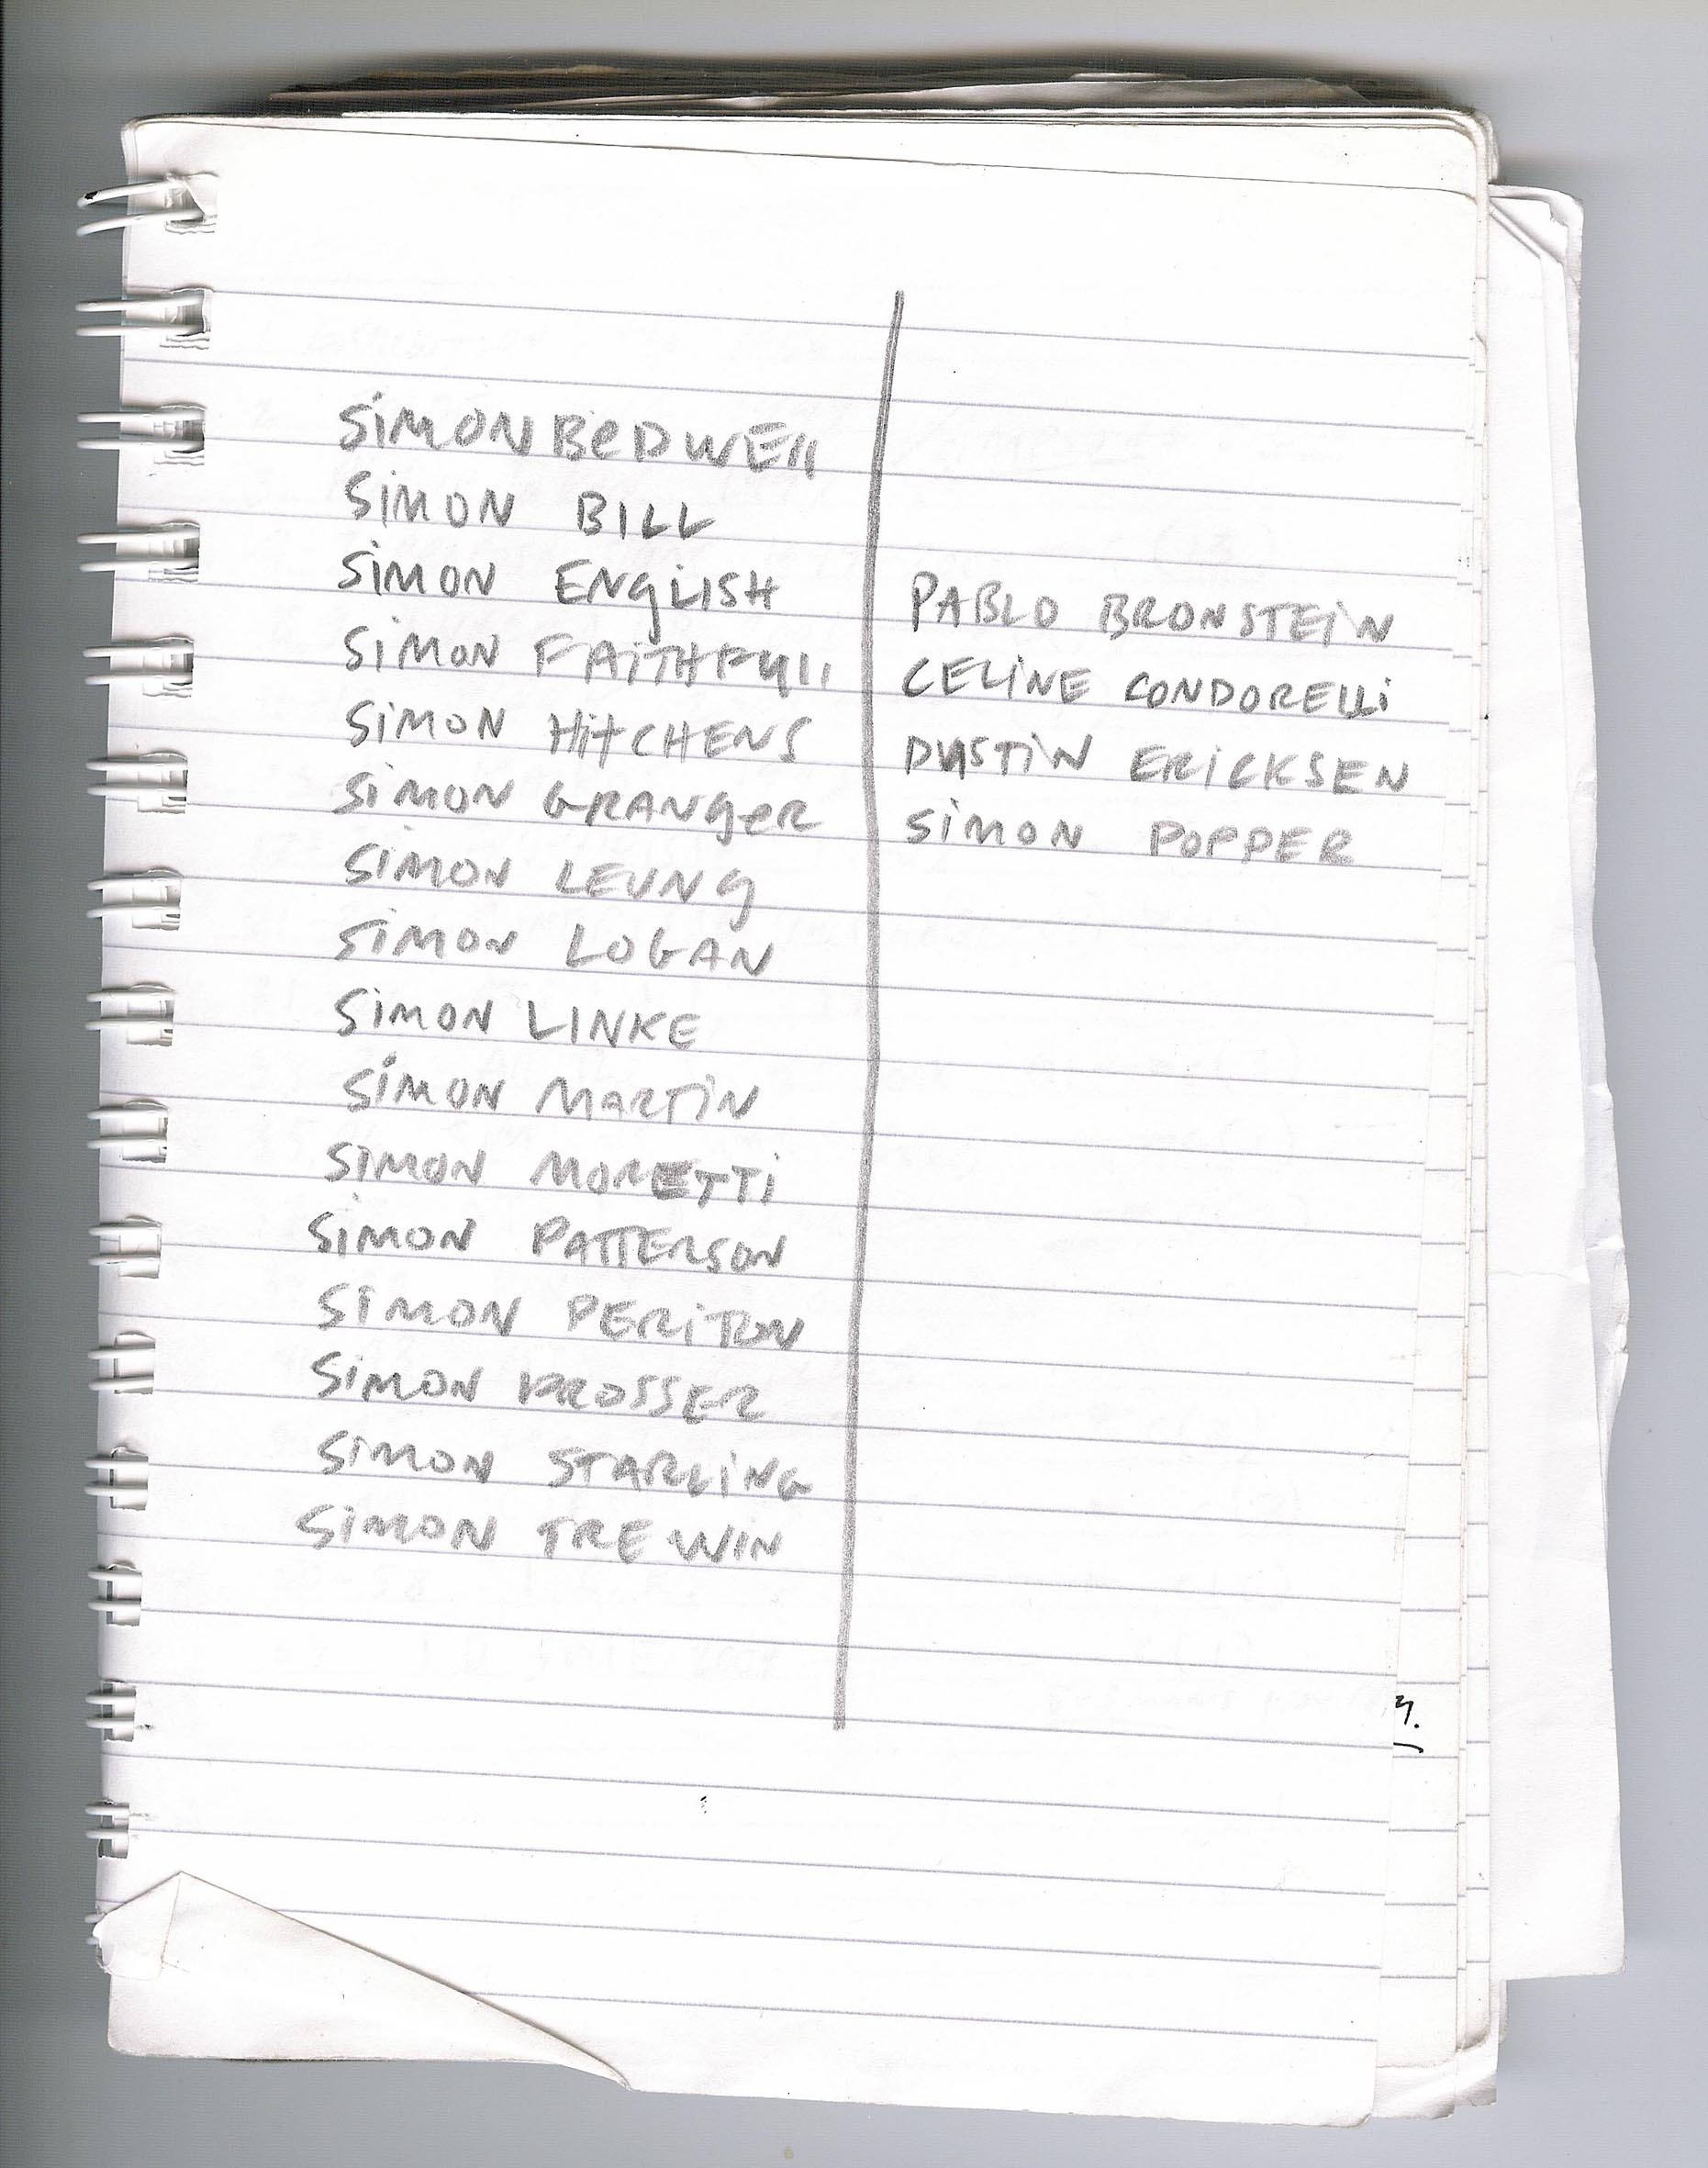 SiMON BeDWEll
SiMON BILL
SiMON ENgLISH
SiMON FAiTHFUll
SiMON HitCHENS
SiMON GRANgeR
SiMON LEUNg
SiMON LOGAN
SiMON LINKE
SiMON MARTiN
SiMON MORETTi
SiMON PATTERSON
SiMON PERiTON
SiMON PROSSER
SiMON STARLiNG
SiMON TREWIN
PABLO BRONSTEiN
CELiNE CONDORELLi
DUSTiN ERiCKSEN
SiMON POPPER